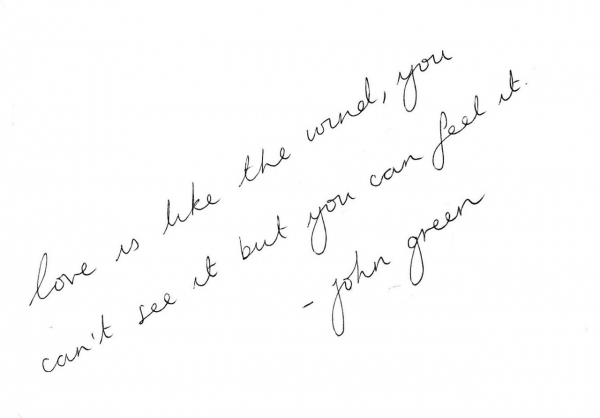 love is like the wind, you
can't see it but you can feel it.
- john green